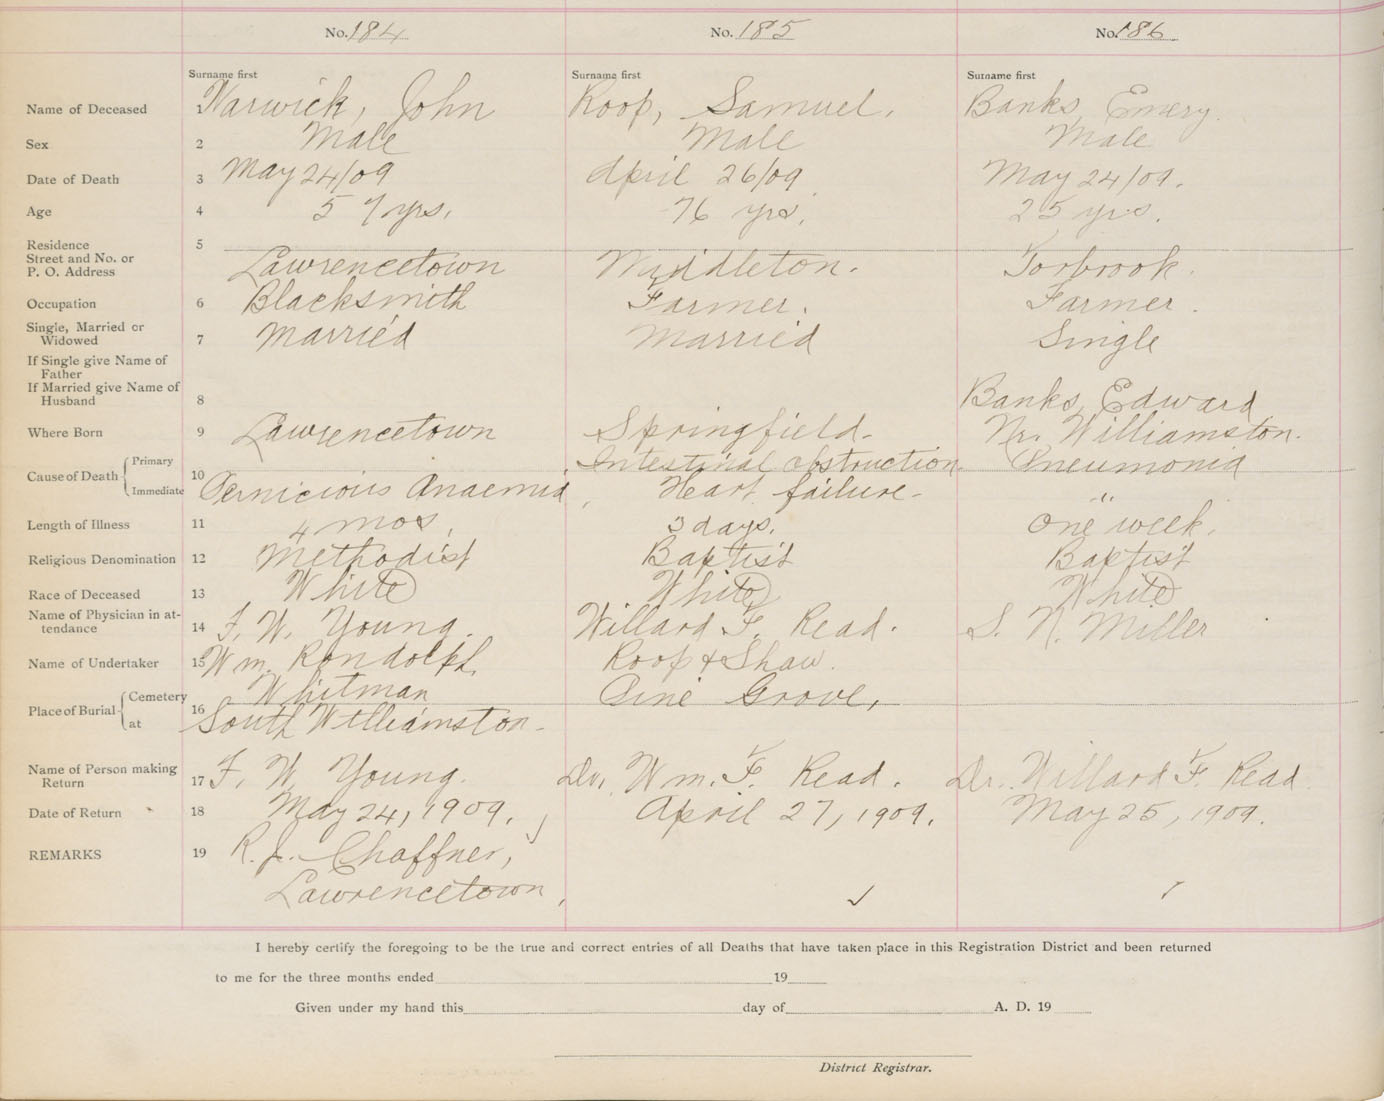 No. 184 No. 185 No. 186
Surname first Surname first Surname first
Name of Deceased 1 Warwick, John Roop, Samuel. Banks, Emery.
Sex 2 Male Male Male
Date of Death 3 May 24/09 April 26/09 May 24/09.
Age 4 57 yrs. 76 yrs. 25 yrs.
Residence 5
Street and No. or
P. O. Address Lawrencetown Middleton. Torbrook.
Occupation 6 Blacksmith Farmer. Farmer.
Single, Married or
Widowed 7 Married Married Single
If Single give Name of
Father
If Married give Name of
Husband 8 Banks, Edward
Where Born 9 Lawrencetown Springfield. Nr. Williamston.
Cause of Death Primary 10 Intestinal obstruction Pneumonia
Immediate Pernicious Anaemia, Heart failure- "
Length of Illness 11 4 mos. 3 days. One week.
Religious Denomination 12 Methodist Baptist Baptist
Race of Deceased 13 White White White
Name of Physician in at-
tendance 14 F. W. Young. Willard F. Read. S. N. Miller
Name of Undertaker 15 Wm. Randolph. Roop & Shaw.
Place of Burial Cemetery 16 Whitman Pine Grove,
at South Williamston-
Name of Person making
Return 17 F. W. Young. Dr. Wm. F. Read. Dr. Willard F. Read
Date of Return 18 May 24, 1909. April 27, 1909. May 25, 1909.
REMARKS 19 R. J. Chaffner,
Lawrencetown,
I hereby certify the foregoing to be the true and correct entries of all Deaths that have taken place in this Registration District and been returned
to me for the three months ended 19
Given under my hand this day of A. D. 19
District Registrar.